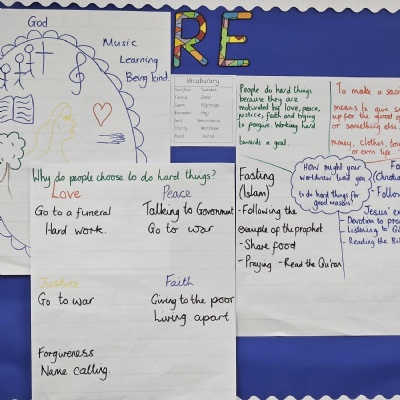 RE
God
Music
Learning
Being kind.
Vocabulary
Why do people choose to do hard things?
Love
Go to a funeral
Hard work.
Peace
Talking to Government
Go to war
Justice
Go to war
Faith
Giving to the poor
Living apart
Forgiveness
Name calling.
People do hard things
because they are
motivated by love, peace,
justice, faith and trying
to forgive. Working hard
towards a goal.
To make a sacr
means to give so
up for the good of
or something else.
money, clothes, to
or even life.
How might your
worldview lead you
to do hard things for
good reasons?
Fasting
(Islam)
-Following the
example of the prophet
- Share food
- Praying - Read the Qur'an
(Christia
- Follow
Jesus' ex
- Devotion to pra
- Listening to G
- Reading the Bib